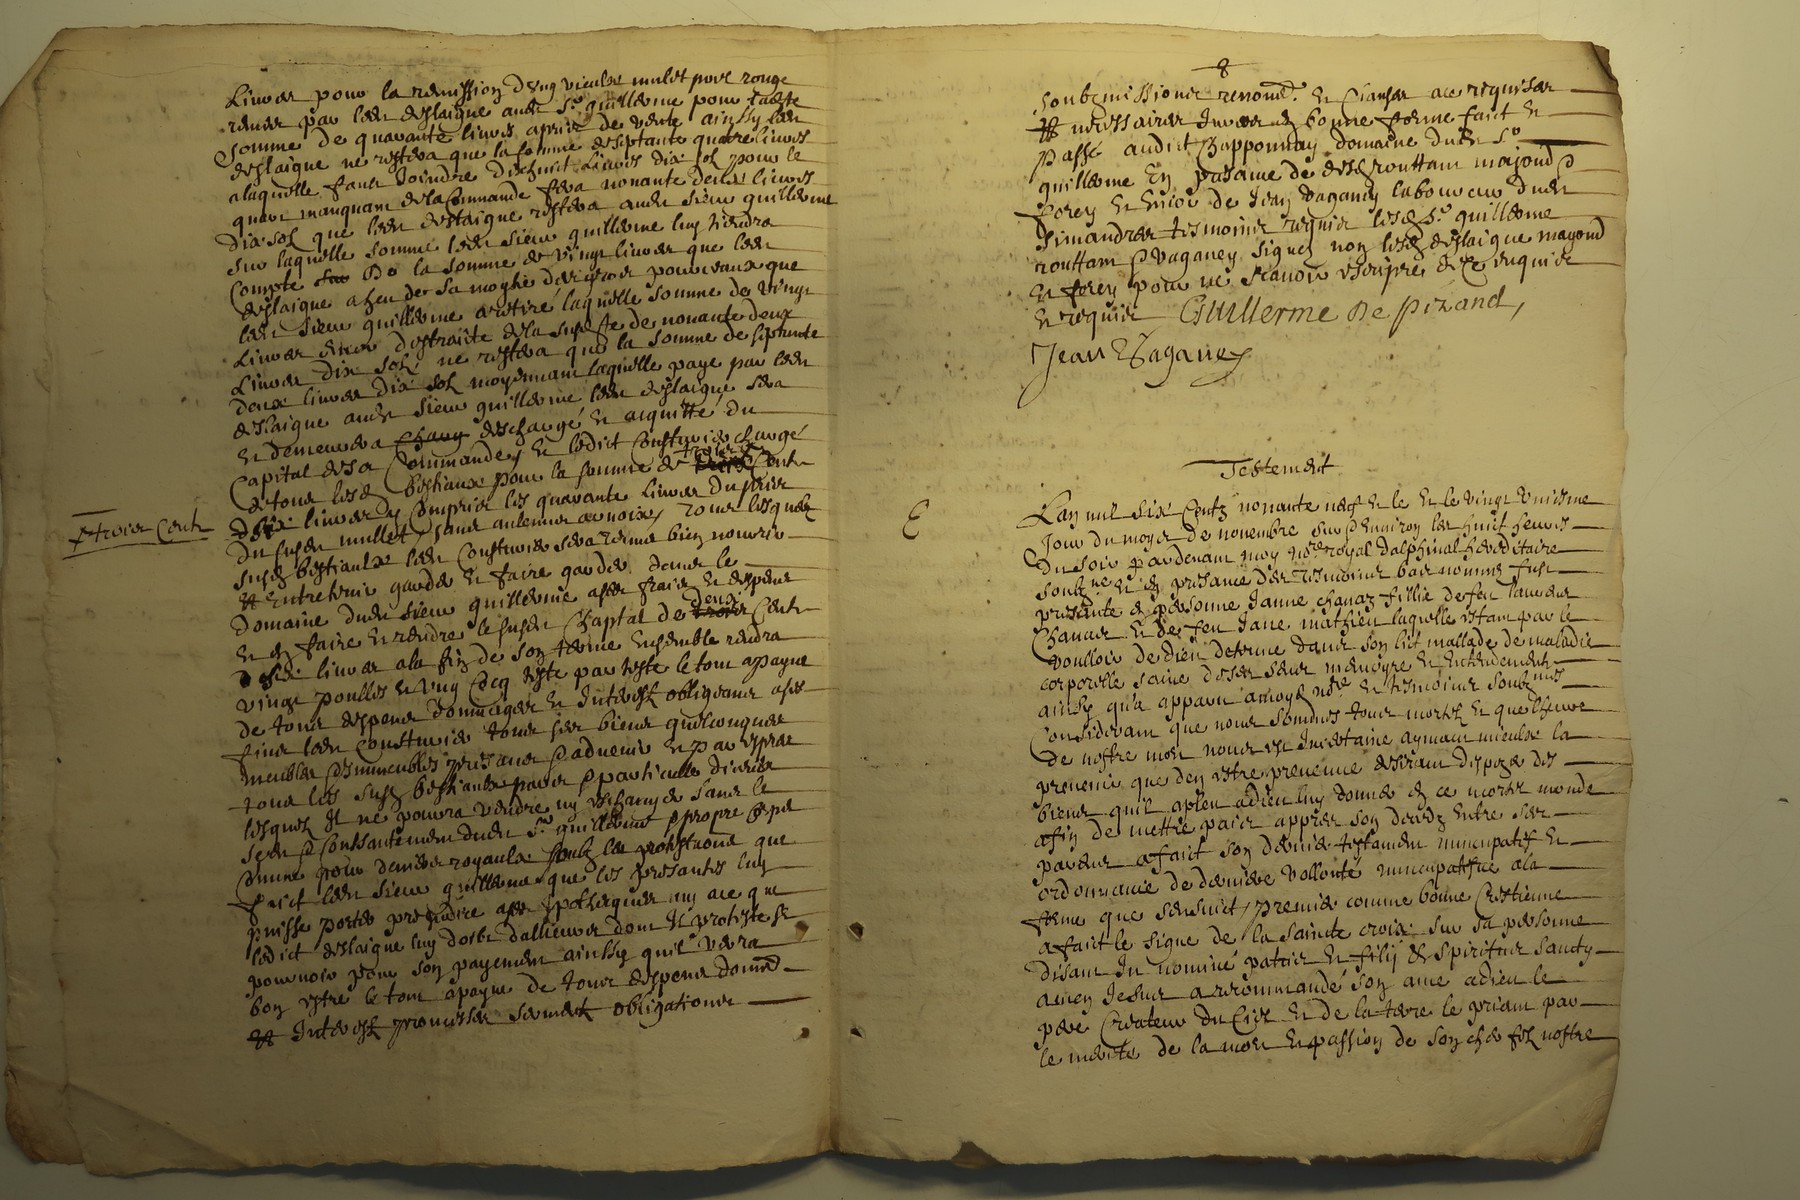 Livres pour la remission d'ung vieulx mulet poil rouge
remis par led deslaigue aud Sr guillerme pour
somme de quarante livres apries de vente ainsy led
deslaigue ne restera que la somme de septante quatre livres
a laquelle faut joindre dixhuict livres dix sol pour le
quart manquant de la commande fera nonante deux livres
dix sol que led deslaigue restera aud sieur guillerme
sur laquelle somme led sieur guillerme luy tiendra
compte de la somme de vingt livres que led
deslaigue a heu de sa moytié des pourceaux que
led sieur guillerme a retiré laquelle somme de vingt
livres distraicte de la susd de nonante deux
livres dix sol ne restera que la somme de septante
deux livres dix sol moyennant laquelle paye par led
deslaigue aud sieur guillerme led deslaigue sera
et demeurera deschargé et acquitté du
capital de sa commande, et ledict chargé
de tous lesd bestiaux pour la somme de trois Centz
dix livres y compries les quarante livres du prix
du susd mullet sans aulcune
et trois Centz
susd bestiaulx led sera tenu bien nourrir
et entretenir garder et faire garder dans le
domaine dud sieur guillerme a ses fraix et despens
et en faire et rendre le susd Chaptal de deux Centz
dix livres a la fin de son terme ensemble rendra
vingt poulles et ung Cocq teste par teste le tout a payne
de tous despens dommages et interestz obligeant a ses
fins led tous ses biens quelconques
meubles et immeubles presans et advenir et par expres
tous les susd bestiaux
lesquelz il ne pourra vendre ny eschanger sans le
sceu et consantement dud Sr guillerme
comme pour deniers royaulx soubz les protestations que
faict led sieur guillerme que les presantes luy
puisse porter prejudice a ses hypotheques ny a ce que
ledict deslaigue luy doibt dallieurs dont il proteste se
pourvoir pour son payement ainsy quil verra
bon estre le tout a payne de tous despens domm
et interestz promesses serment obligations
8
soubzmissions renonc. et clauses a ce requises
et necessaires en bonne forme faict et
passé audict Chapponnay domaine dud Sr
guillerme en presance de routtam
forey et encor de Jean Vaganey laboureur dud
Simandres tesmoins requis lesd Sr guillerme
routtam et Vaganey signes non lesd deslaigue
et forey pour ne scavoir escripre de ce enquis
et requis Guillerme De pizand,
Jean Vaganey
Testement
L'an mil six Centz nonante neuf et le et le vingt uniesme
Jour du moys de novembre sur d'environ les huict heures
du soir par devant moy nre royal dalphinal hereditaire
soubzne et en presance des tesmoins bas nommes fust
presante en personne Janne chanas fillie de feu
Chanas et de feu Jane mathieu laquelle estant par le
voulloir de dieu detenue dans son lict mallade de maladie
corporelle saine de ses sens memoyre et entendement
ainsy qu'a apparu a moyd nre et tesmoins soubznes
Considerant que nous sommes tous mortelz et que l'heure
de nostre mort nous est incertaine aymant mieulx la
prevenir que d'en estre prevenue desirant dispozer des
biens qu'il a pleu a dieu luy donner en ce mortel monde
afin de mettre paix appres son decedz entre ses
parens a faict son dernier testament nuncupatif et
ordonnance de derniere vollonté nuncupattive a la
forme que sensuict, premier comme bonne Crestienne
a faict le signe de la saincte croix sur sa personne
disant In nomine patris et filij et spiritus sancty
amen Jesus a recommandé son ame a dieu le
pere Createur du Ciel et de la terre le priant par
le merite de la mort et passion de son cher filz nostre